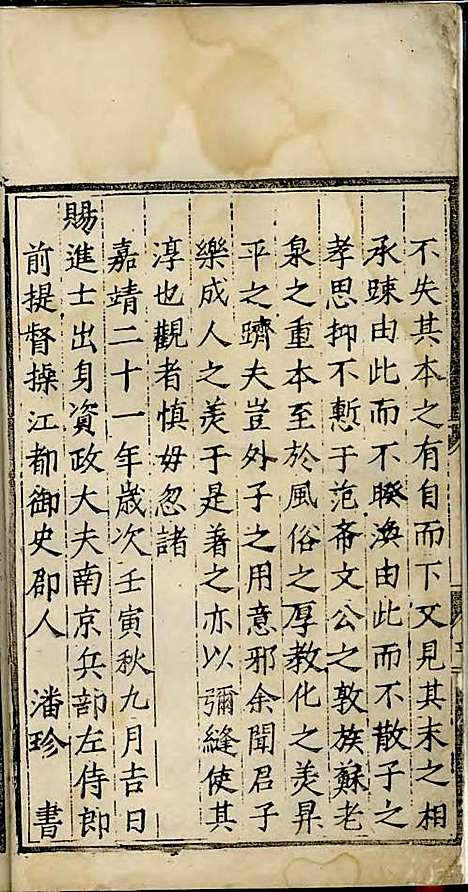 不失其本之有自而下又見其末之相
承踈由此而不睽渙由此而不散子之
孝思抑不慙于范希文公之敦族蘇老
泉之重本至於風俗之厚教化之羙昇
平之躋夫豈外子之用意邪余聞君子
樂成人之羙于是著之亦以彌縫使其
淳也觀者慎毋忽諸
嘉靖二十一年歲次壬寅秋九月吉日
賜進士出身資政大夫南京兵部左侍郎
前提督操江都御史郡人 潘珍 書